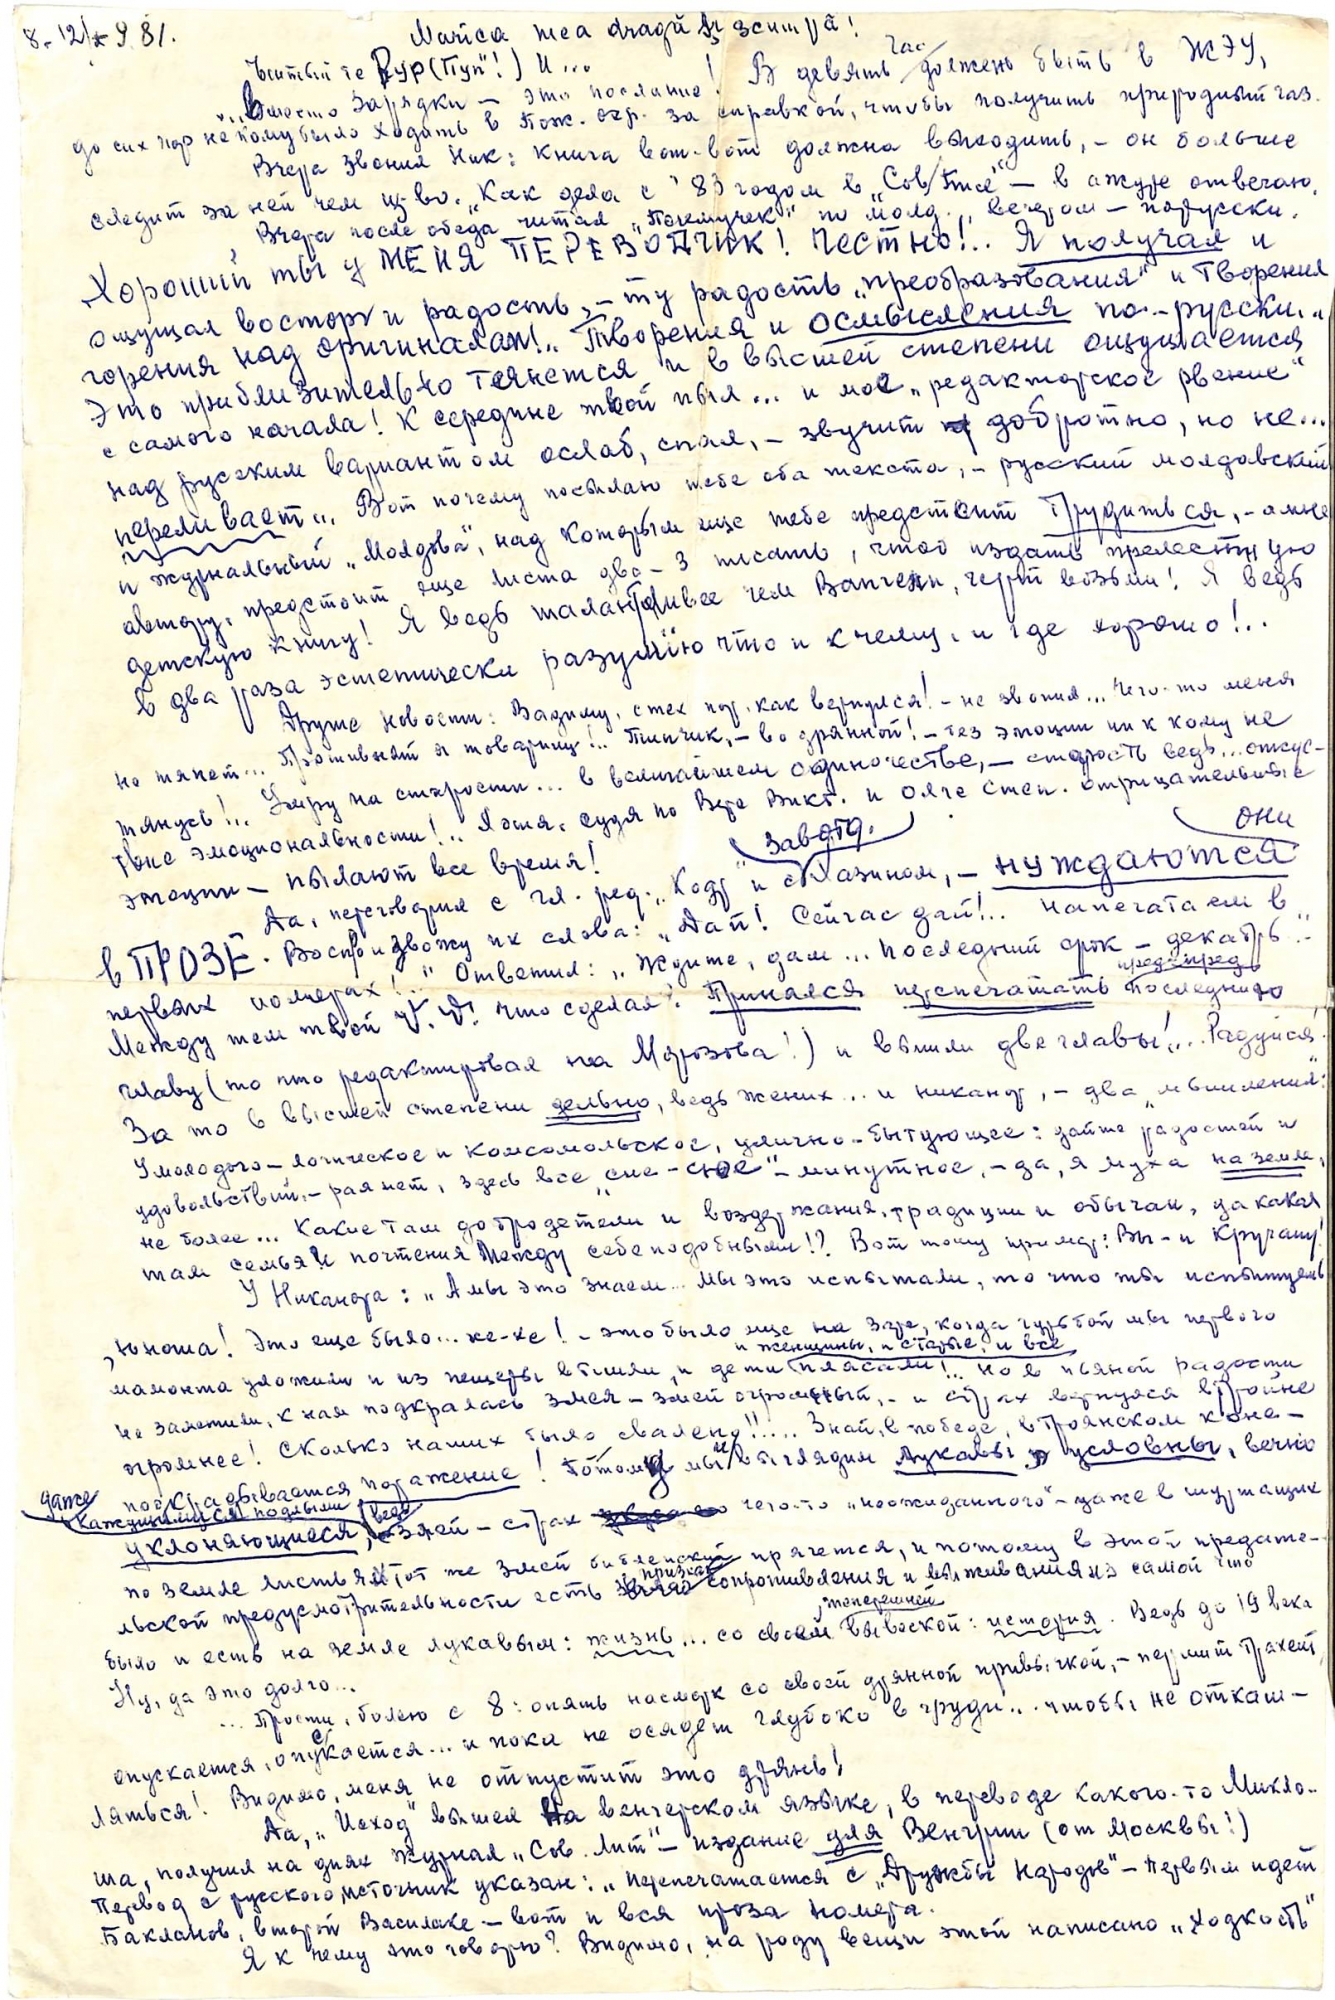 8-12-981.
Майса теа dragă
В девять час должен быть в ЖЭУ,
"...Вместо зарядки — это послание!
до сих пор некому было ходить в Пож. охр. за справкой, чтобы получить природный газ.
Вчера звонил Ник: книга вот-вот должна выходить, — он больше
следит за ней чем из-во. "Как дела с 83 годом в "Сов/Пис" — в ажуре отвечаю.
Вчера после обеда читал "Почемучек" по молд., вечером — по русски.
Хороший ты у МЕНЯ ПЕРЕВОДЧИК! Честно!.. Я получал и
ощущал восторг и радость, — ту радость "преобразования" и творения
горения над оригиналом!.. Творения и осмысления по-русски.
Это приблизительно тянется и в высшей степени ощущается
с самого начала! К середине твой пыл... и мое "редакторское рвение"
над русским вариантом ослаб, спал, — звучит добротно, но не...
переливает... Вот почему посылаю тебе оба текста, — русский молдавский
и журнальный "Молдова", над которым еще тебе предстоит трудиться, — а мне
автору, предстоит еще листа два-3 писать, чтоб издать прелестную
детскую книгу! Я ведь талантливее чем Вангели, черт возьми! Я ведь
в два раза эстетически разумію что и к чему, и где хорошо!..
Другие новости: Вадиму, с тех пор, как вернулся! — не звонил... Чего-то меня
не тянет... Противнят я товарищ!.. Типчик, — во дрянной! — без эмоции ни к кому не
тянусь!.. Умру на старости... в величайшем одиночестве, — старость ведь... отсус-
твие эмоциональности!.. Хотя, судя по Вере Викт. и Олге Степ. отрицательные
эмоции — пылают все время!
Да, переговорил с гл. ред. "Кодр" и завотд. Блазином, — они нуждаются
в ПРОЗЕ. Воспроизвожу их слова: "Дай! Сейчас дай!.. Напечатаем в
первых номерах!.." Ответил: "Ждите, дам... Последний срок — декабрь"...
Между тем твой V.V. что сделал? Принялся перепечатать пред-пред последнюю
главу (то что редактировал на Морозова!) и вышли две главы!... Радуйся!
За то в высшей степени дельно, ведь жених... и Никанор, — два "мышления":
У молодого — логическое и комсомольское, улично-бытующее: дайте радостей и
удовольствий, — рая нет, здесь все "сие-сие" — минутное, — да, я муха на земле,
не более... Какие там добродетели и воздержания, традиции и обычаи, да какая
там семья и почтения между себе подобными!? Вот тому пример: Вы — и Кручану!
У Никанора: "А мы это знаем... Мы это испытали, то что ты испытуешь
, юноша! Это еще было... хе-хе! — это было еще на заре, когда гурьбой мы первого
мамонта уложили и из пещеры вышли, и дети и женщины, и старые, и все плясали!.. Но в пьяной радости
не заметили, к нам подкралась змея — змей огромный, — и страх вернулся втройне
огромнее! Сколько наших было свалено!!.... Знай, в победе, в троянском коне —
подкрадывается поражение! Потому мы и выглядим лукавы и условны, вечно
даже кажущимися подлыми
уклоняющиеся, ведь змей — страх чего-то "неожиданного" — даже в шуршащих
по земле листьях тот же змей библейский прячется, и потому в этой предате-
льской предусмотрительности есть признак сопротивления и выживания из самой что
было и есть на земле лукавым: жизнь... со своей теперешней вывеской: история. Ведь до 19 века
Ну, да это долго...
... Прости, болею с 8: опять насморк со своей дрянной привычкой, — пермит трахеит,
опускается, опускается... и пока не осядет глубоко в груди... чтобы не откаш-
ляться! Видимо, меня не отпустит это дрянь!
Да, "Исход" вышел на венгерском языке, в переводе какого-то Микло-
ша, получил на днях журнал "Сов. Лит" — издание для Венгрии (от Москвы!)
Перевод с русского, источник указан: "Перепечатается с "Дружбы Народов" — первым идет
Бакланов, второй Василаке — вот и вся проза номера.
Я к чему это говорю? Видимо, на роду вещи этой написано "ходкость"